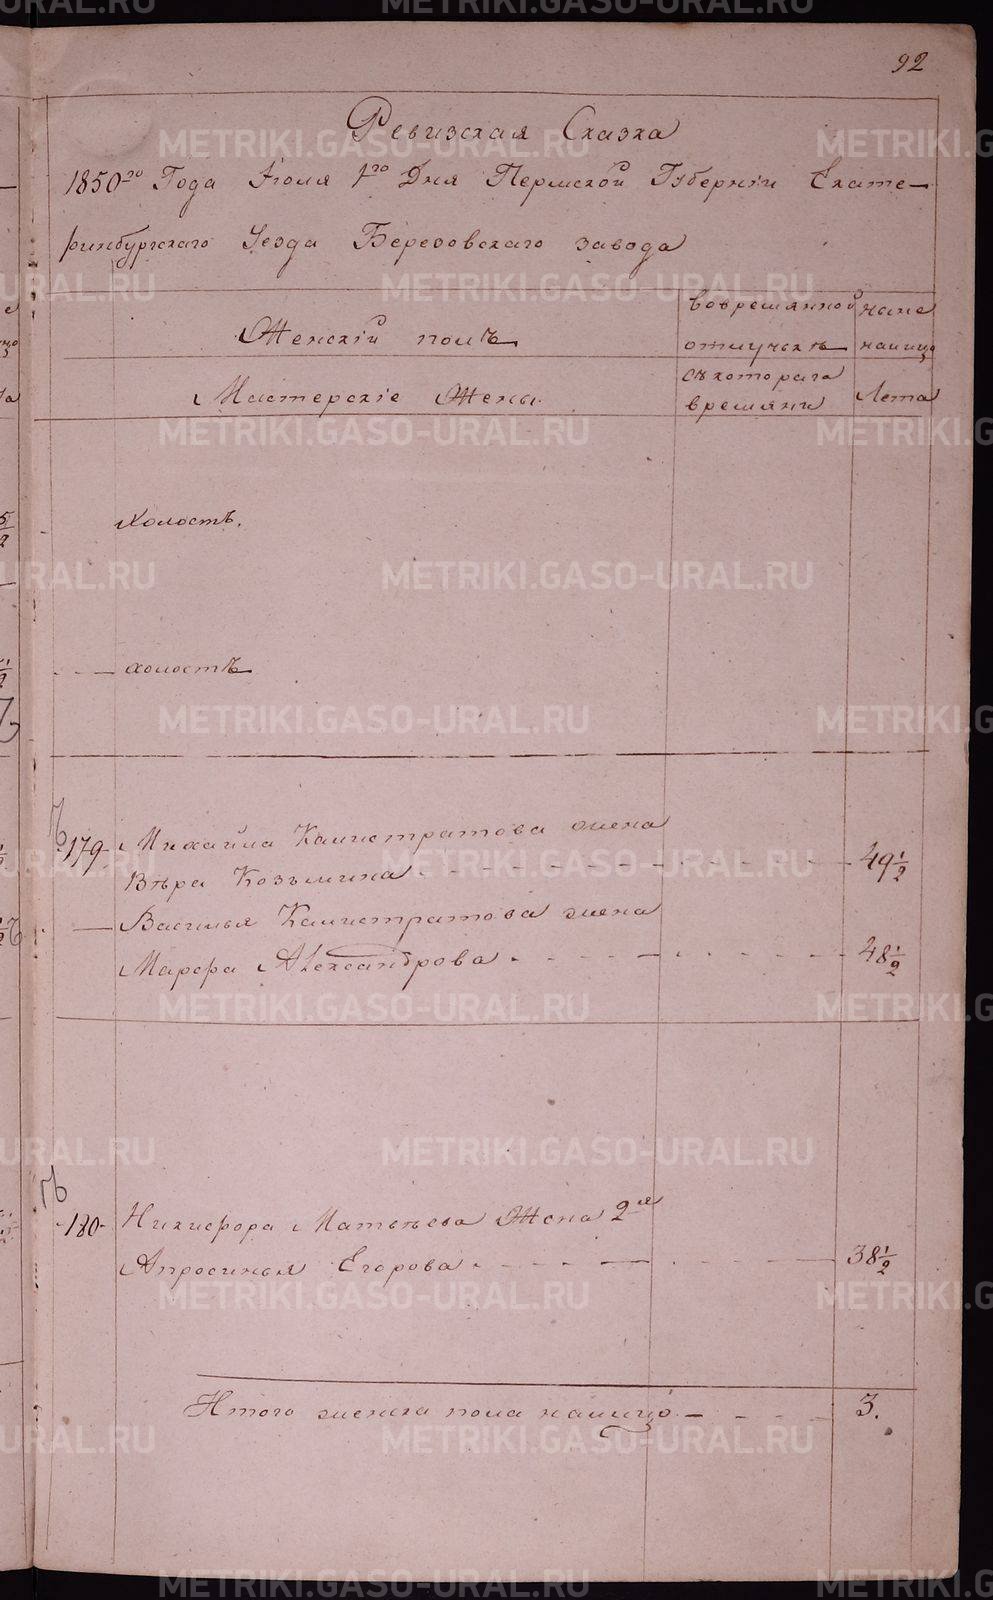 92
Ревизская Сказка
1850го Года Июля 1го Дня Пермской Губернiи Екате-
ринбургскаго Уезда Березовскаго завода
Женскiй полъ
вовремянной
отлучькѣ
ныне
налицо
Мастерскiе Жены.
съкотораго
времяни
Лета
Холостъ.
холостъ
179 Михайла Калистратова жена
Вѣра Козьмина 49 1/2
Василья Калистратова жена
Марфа Александрова 48 1/2
180 Никифора Матвѣева Жена 2я
Апросинья Егорова 38 1/2
Итого женска пола налицо 3.
METRIKI.GASO-URAL.RU